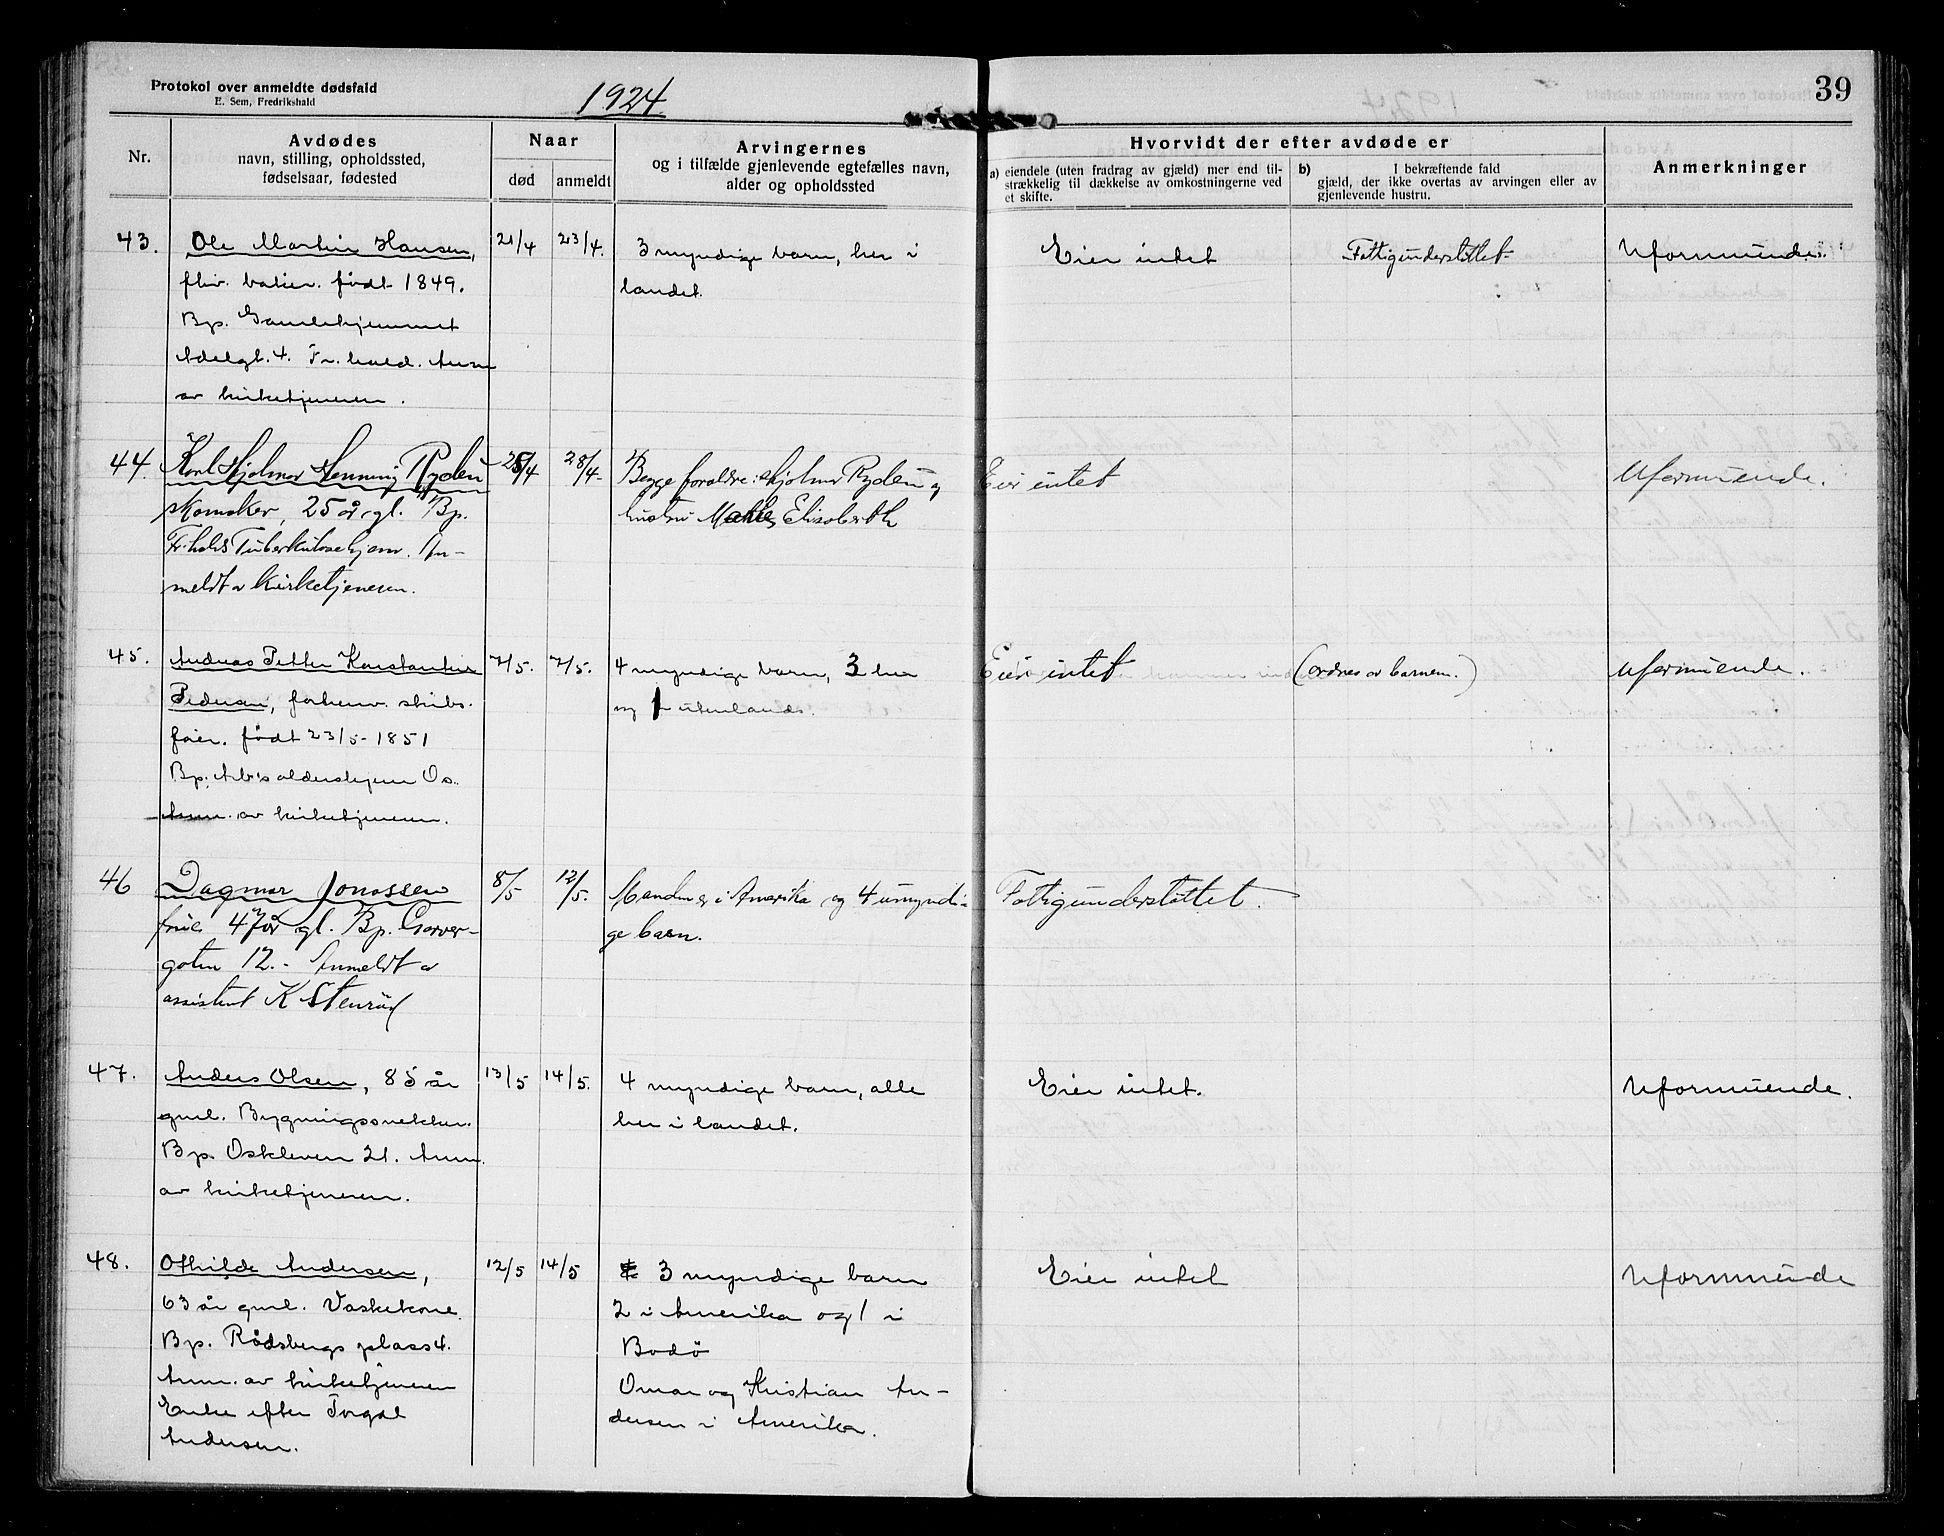 Protokol over anmeldte dødsfald
E. Sem, Fredrikshald
1924
39
Nr.
Avdødes
navn, stilling, opholdssted,
fødselsaar, fødested
Naar
død
anmeldt
Arvingernes
og i tilfælde gjenlevende egtefælles navn,
alder og opholdssted
Hvorvidt der efter avdøde er
a) eiendele (uten fradrag av gjæld) mer end til-
strækkelig til dækkelse av omkostningerne ved
et skifte.
b) I bekræftende fald
gjæld, der ikke overtas av arvingen eller av
gjenlevende hustru.
Anmerkninger
43. Ole Martin Hansen, 21/4 23/4. 3 myndige barn, her i Eier intet Fattigunderstøttet Uformuende.
født 1849. landet.
Bp. Gamlehjemmet
Adelgt. 4. Fr.hald. Anm
av kirketjeneren.
44. Karl Hjalmar Henning Ryden 25/4 28/4 Begge foraldre: Hjalmar Ryden og Eier intet Uformuende.
skomaker, 25 år gl. Bp. hustru Elisabeth
Fr.halds Tuberkulosehjem. An-
meldt av kirketjeneren.
45. Andreas Petter Konstantin 7/5. 7/5. 4 myndige barn, 3 her Eier intet (ordnes av barnene.) Uformuende.
Pedersen, forhenv. skibs- og 1 utenlands.
fører. født 23/5-1851
Bp. Arb's aldershjem Os.
Anm. av kirketjeneren.
46 Dagmar Jonassen 8/5 12/5. Manden er i Amerika og 4 umyndi- Fattigunderstøttet.
frue 47 år gl. Bp. Garver- ge barn.
gaten 12. - Anmeldt av
assistent K Stenrød
47. Anders Olsen, 85 år 13/5 14/5. 4 myndige barn, alle Eier intet. Uformuende.
gml. Bygningssnekker. her i landet.
Bp. Oskleven 21. Anm.
av kirketjeneren.
48. Othilde Andersen, 12/5 14/5 3 myndige barn Eier intet Uformuende
63 år gml. Vaskekone 2 i Amerika og 1 i
Bp. Rødsbergs plass 4. Bodö
Anm. av kirketjeneren Omar og Kristian An-
Enke efter Torgal dersen i Amerika.
Andersen.